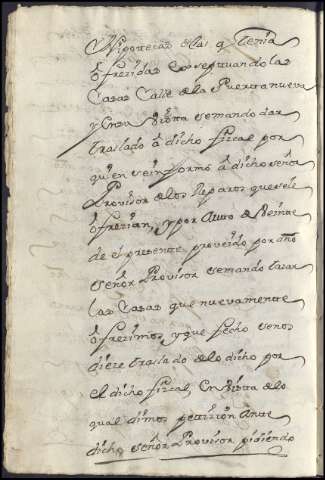 Hipottecas e las q Tenia
ofrezidas Exseptuando las
Casas Calle de la Puerta nueva
y en su Vistta se mando dar
traslado a dicho fiscal por
quien se informó a dicho señor
Provisor de los Reparos que se le
ofrezian, y por Autto de Veinte
de el presente proveido por dho
señor Provisor se mando tasar
las Casas que nuevamente
ofrezimos, y que fecho se nos
diese traslado de lo dicho por
el dicho fiscal, en Vistta de lo
qual dimos petizion Ante
dicho señor Provisor pidiendo